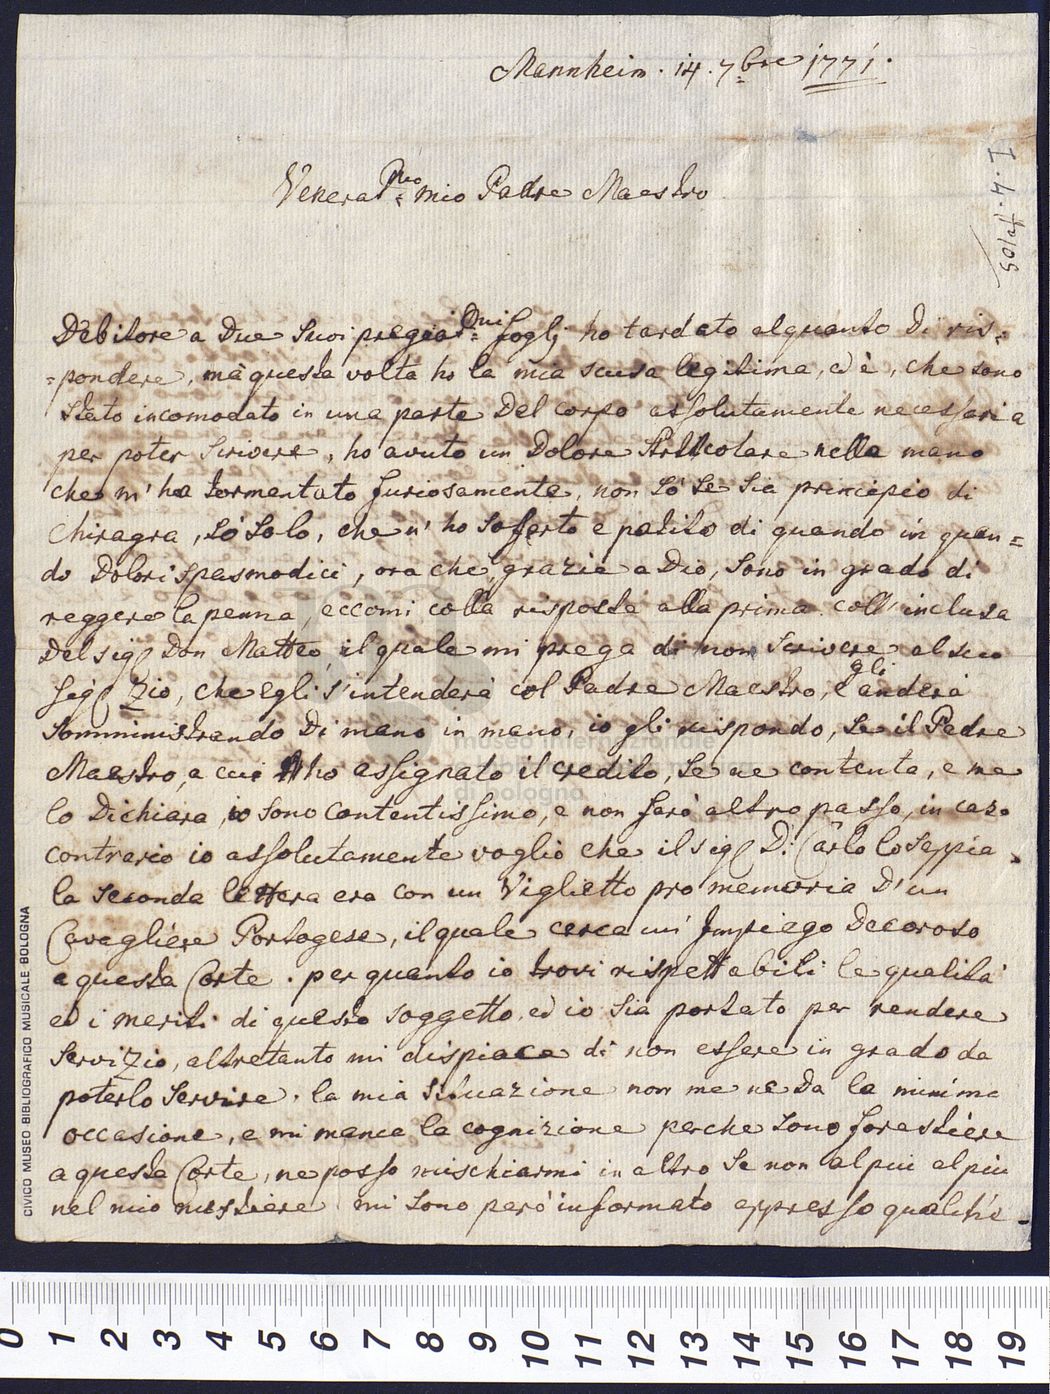 Mannheim. 14. 7bre 1771.
I.4.
Venera Pmo mio Padre Maestro
Debitore a Due Suoi pregiaDmi fogli ho tardato alquanto Di ris=
=pondere, mà questa volta ho la mia scusa legitima, ed è, che sono
Stato incomodato in una parte Del corpo assolutamente necessaria
per poter Scrivere, ho avuto un Dolore Articolare nella mano
che m'ha tormentato furiosamente, non Sò Se Sia principio di
Chiragra, Sò Solo, che n'ho Soferto e patito di quando in quan=
do Dolori Spasmodici, ora che, grazie a Dio, Sono in grado di
reggere la penna, eccomi colla risposta alla prima coll'inclusa
Del sigr Don Matteo, il quale mi prega di non Scrivere al suo
Sigr Zio, che egli s'intenderà col Padre Maestro, e gli anderà
Somministrando Di mano in mano, io gli rispondo, Se il Padre
Maestro, a cui ho assignato il credito, Se ne contenta, e me
lo Dichiara, io Sono Contentissimo, e non farò altro passo, in cazo
contrario io assolutamente voglio che il sigr D: Carlo lo Seppia.
la Seconda lettera era con un Viglietto pro memoria D'un
Cavagliere Portogese, il quale cerca un' Impiego Decoroso
a questa Corte. per quanto io trovi rispettabili le qualità
ed i meriti di questo soggetto, ed io Sia portato per rendere
Servizio, altretanto mi dispiace di non essere in grado da
poterlo Servire. la mia Situazione non me ne Da la minima
occasione, e mi manca la cognizione perche Sono forestiere
a questa Corte, ne posso mischiarmi in altro Se non al piu al più
nel mio mestiere mi Sono però informato appresso qualche
museo internazionale
e biblioteca della musica
di bologna
CIVICO MUSEO BIBLIOGRAFICO MUSICALE BOLOGNA
0 1 2 3 4 5 6 7 8 9 10 11 12 13 14 15 16 17 18 19